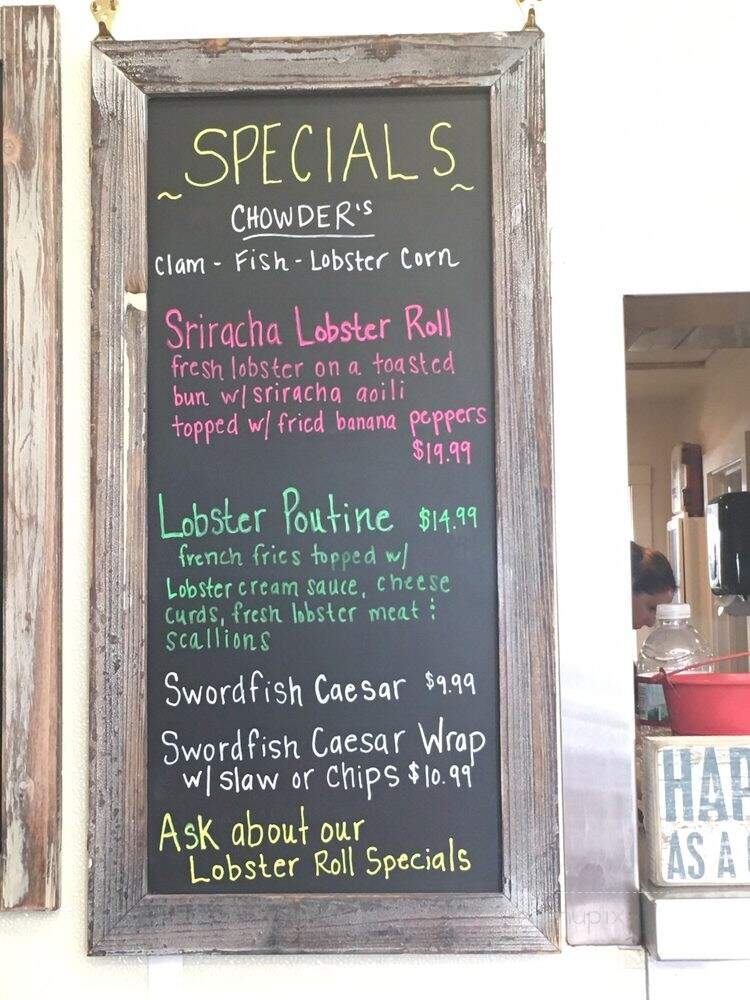 ~SPECIALS~
CHOWDER's
Clam - Fish - Lobster Corn
Sriracha Lobster Roll
fresh lobster on a toasted
bun w/ sriracha aoili
topped w/ fried banana peppers
$19.99
Lobster Poutine $14.99
french fries topped w/
Lobster cream sauce, cheese
curds, fresh lobster meat &
scallions
Swordfish Caesar $9.99
Swordfish Caesar Wrap
w/ slaw or chips $10.99
Ask about our
Lobster Roll Specials
HAP
AS A